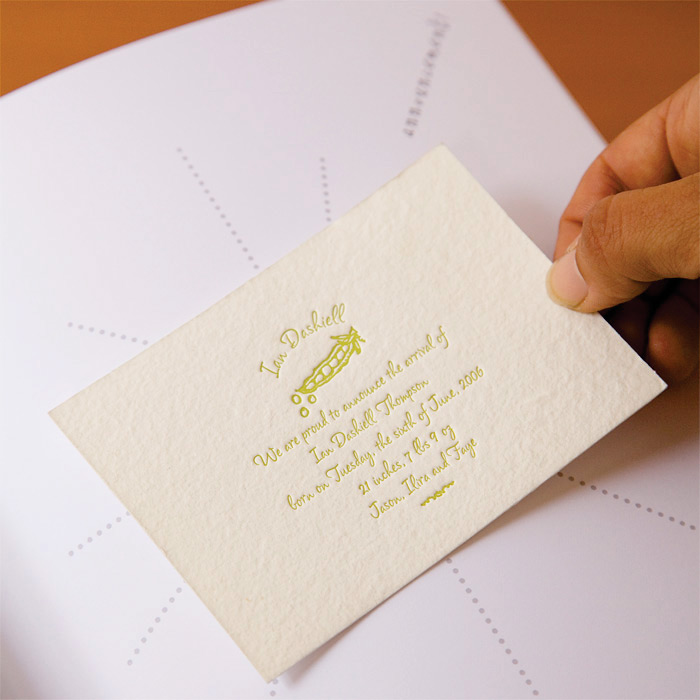 Ian Dashiell
We are proud to announce the arrival of
Ian Dashiell Thompson
born on Tuesday, the sixth of June, 2006
21 inches, 7 lbs 9 oz
Jason, Ilsra and Faye